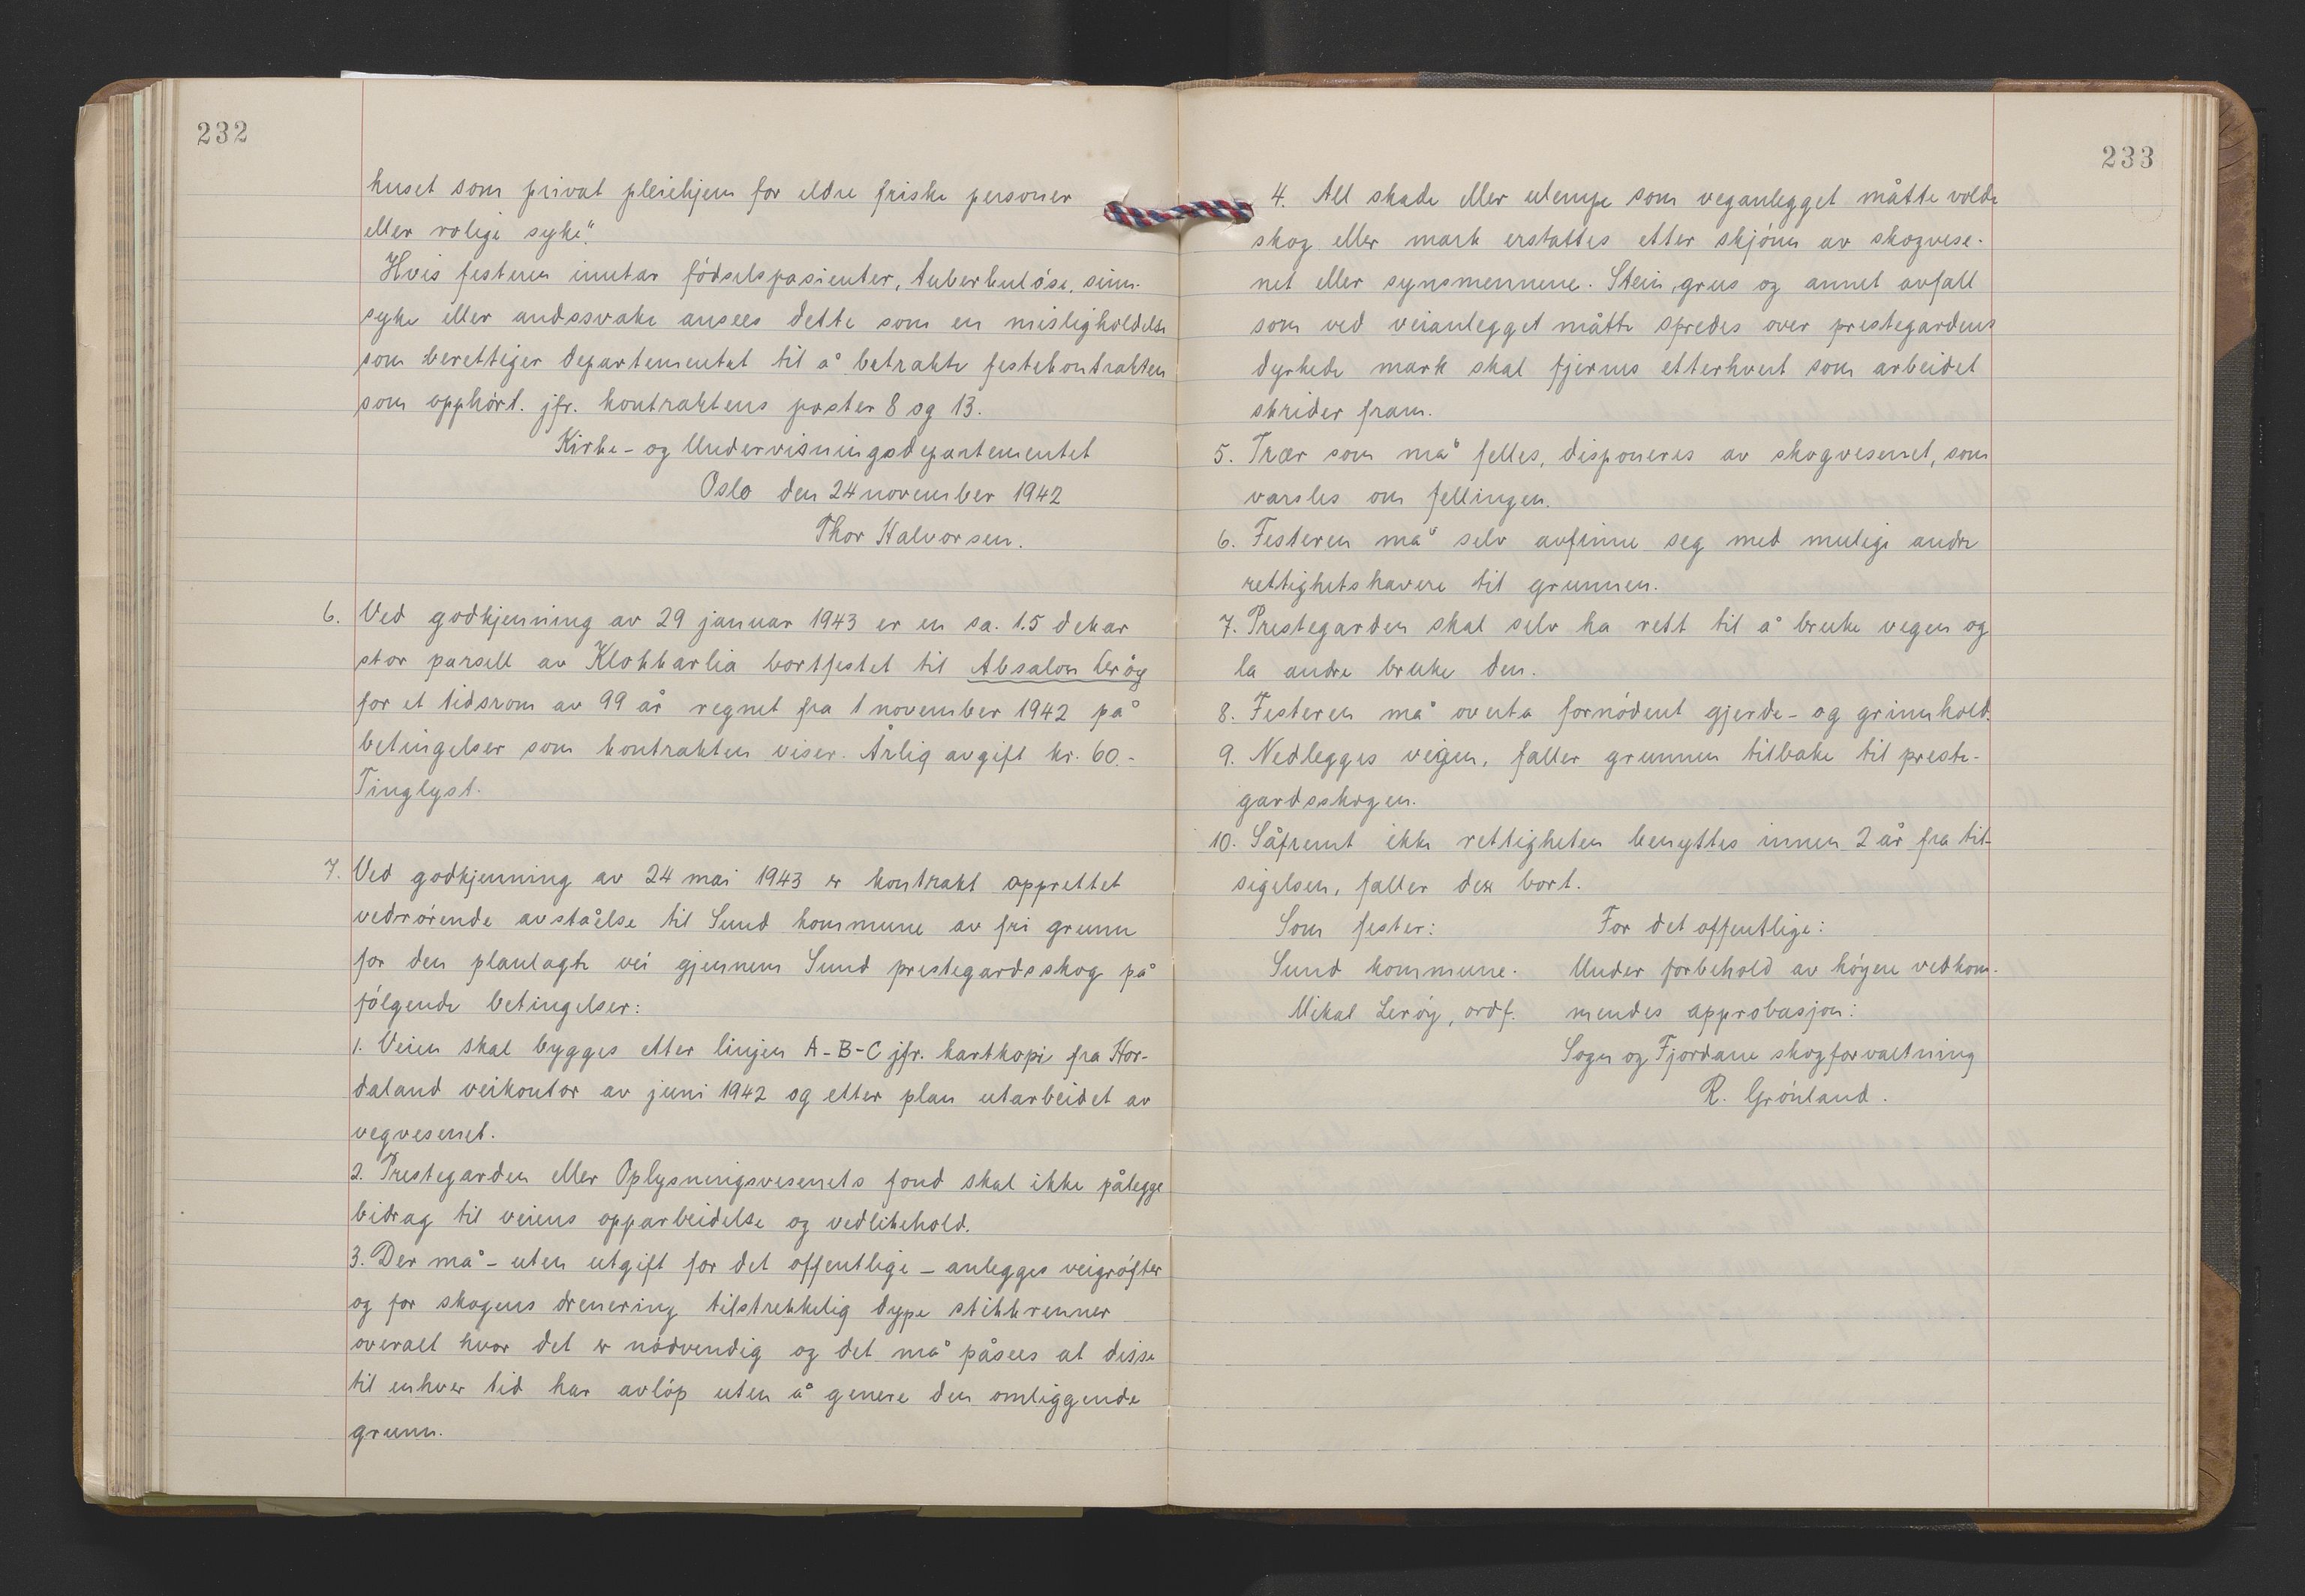 232
huset som privat pleiehjem for eldre friske personer
eller rolige syke".
Hvis festeren inntar fødselspasienter, tuberkuløse, sinn-
syke eller andssvake ansees dette som en misligholdelse
som berettiger departementet til å betrakte festekontrakten
som opphørt. jfr. kontraktens poster 8 og 13.
Kirke- og Undervisningsdepartementet
Oslo den 24 november 1942
Thor Halvorsen.
6. Ved godkjenning av 29 januar 1943 er en sa. 1.5 dekar
stor parsell av Klokkarlia bortfestet til Absalon Lerøy
for et tidsrom av 99 år regnet fra 1 november 1942 på
betingelser som kontrakten viser. Årlig avgift kr. 60.-
Tinglyst.
7. Ved godkjenning av 24 mai 1943 er kontrakt opprettet
vedrørende avståelse til Sund kommune av fri grunn
for den planlagte vei gjennem Sund prestegardsskog på
følgende betingelser:
1. Veien skal bygges etter linjen A-B-C jfr. kartkopi fra Hor-
daland veikontor av juni 1942 og etter plan utarbeidet av
vegvesenet.
2. Prestegarden eller Oplysningsvesenets fond skal ikke pålegge
bidrag til veiens opparbeidelse og vedlikehold.
3. Der må - uten utgift for det offentlige - anlegges veigrøfter
og for skogens drenering tilstrekkelig dype stikkrenner
overalt hvor det er nødvendig og det må påsees at disse
til enhver tid har avløp uten å genere den omliggende
grunn.
233
4. All skade eller ulempe som veganlegget måtte volde
skog eller mark erstattes etter skjønn av skogvese-
net eller synsmennene. Stein, grus og annet avfall
som ved veianlegget måtte spredes over prestegardens
dyrkede mark skal fjernes etterhvert som arbeidet
skrider fram.
5. Trær som må felles, disponeres av skogvesenet, som
varsles om fellingen.
6. Festeren må selv avfinne seg med mulige andre
rettighetshavere til grunnen.
7. Prestegarden skal selv ha rett til å bruke vegen og
la andre bruke den.
8. Festeren må overta fornødent gjerde- og grinnhold.
9. Nedlegges veigen, faller grunnen tilbake til preste-
gardsskogen.
10. Såfremt ikke rettigheten benyttes innen 2 år fra til-
sigelsen, faller den bort.
Som fester: For det offentlige:
Sund kommune. Under forbehold av høyere vedkom-
Mikal Lerøy, ordf. mendes approbasjon:
Sogn og Fjordane skogforvaltning
R. Grønland.